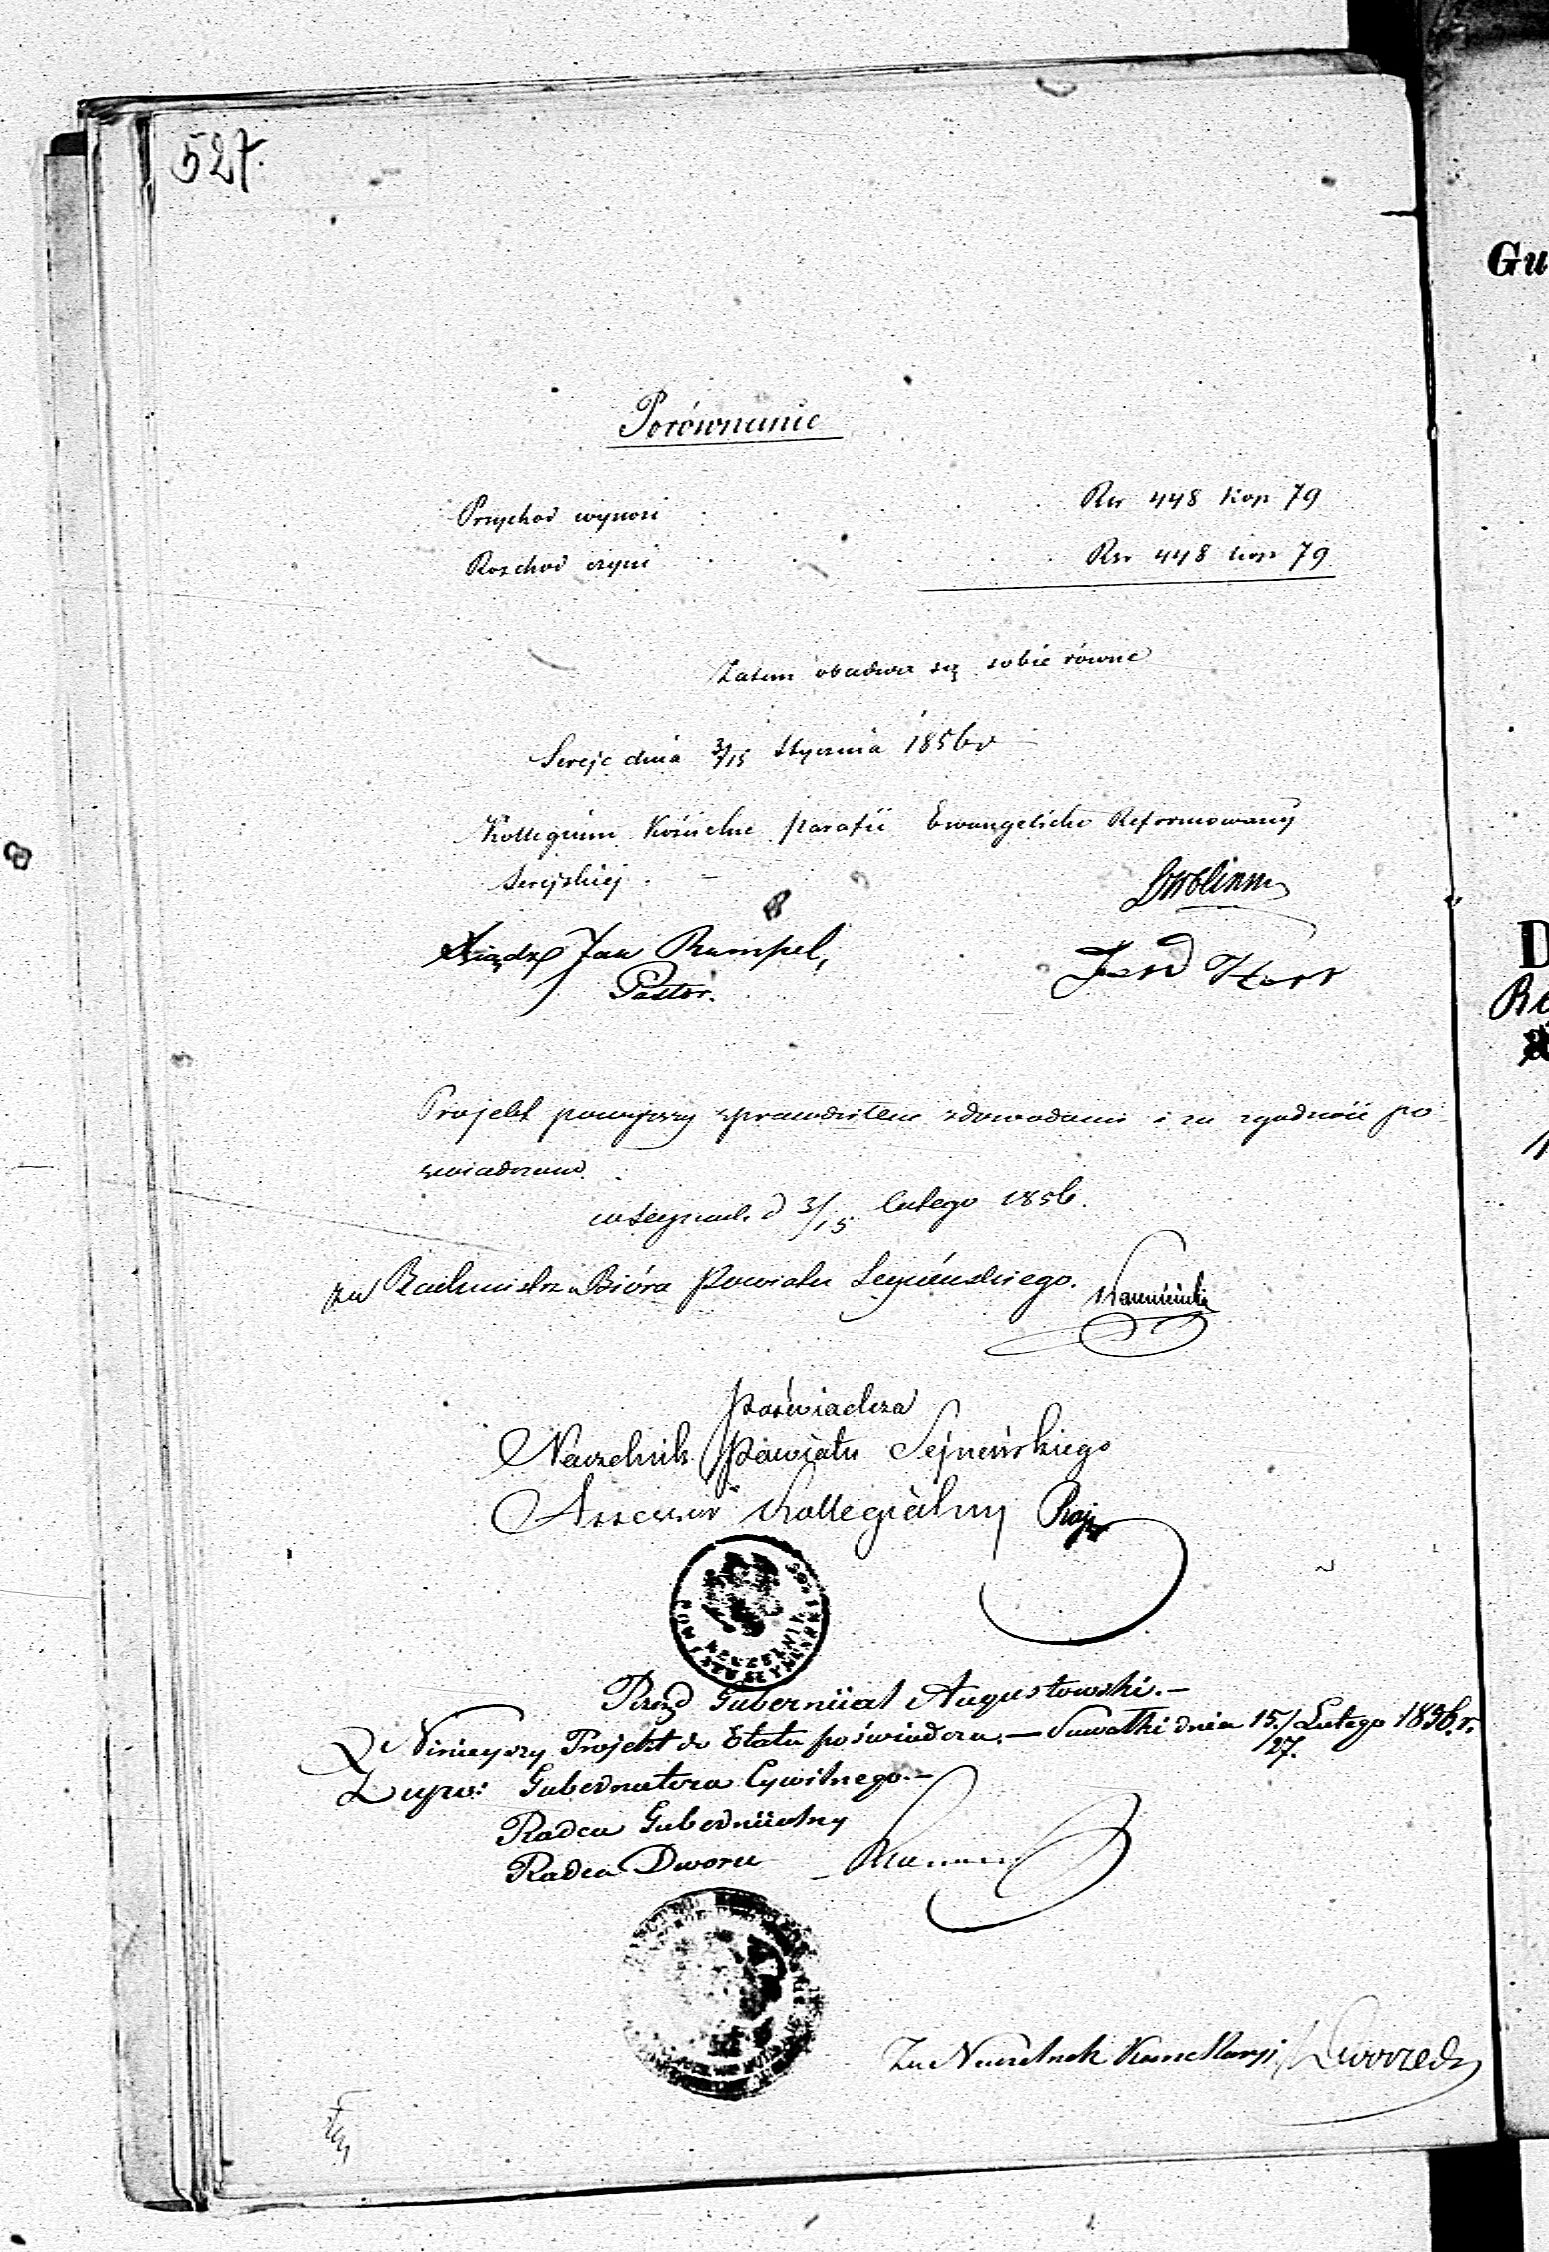 527.
Porównanie
Przychod wynosi . . . . Rsr 448 kop 79
Rozchod czyni . . . . Rsr 448 kop 79
Zatem obadwa są sobie równe
Sereje dnia 3/15 Stycznia 1856 r
Kollegium Kościelne parafii Ewangelicko Reformowany
Serejskiej.
Xiądz Jan Rumpel,
Pastor.
Projekt powyższy sprawdziłem z dowodami i za zgodność po
świadczam
w Seynach d 3/15 Lutego 1856.
Rachmistrza Bióra Powiatu Seyneńskiego.
poświadcza
Naczelnik Powiatu Sejneńskiego
Assessor Kollegialny
NACZELNIK
POWIATU SEYNENSKIEGO
Rząd Gubernijal Augustowski.—
Niniejszy Projekt do Etatu poświadcza.— Suwałki dnia 15./27. Lutego 1856. r.
Gubernatora Cywilnego.—
Radca Gubernijalny
Radca Dworu
Za Naczelnik Kancellaryi
Gu
D